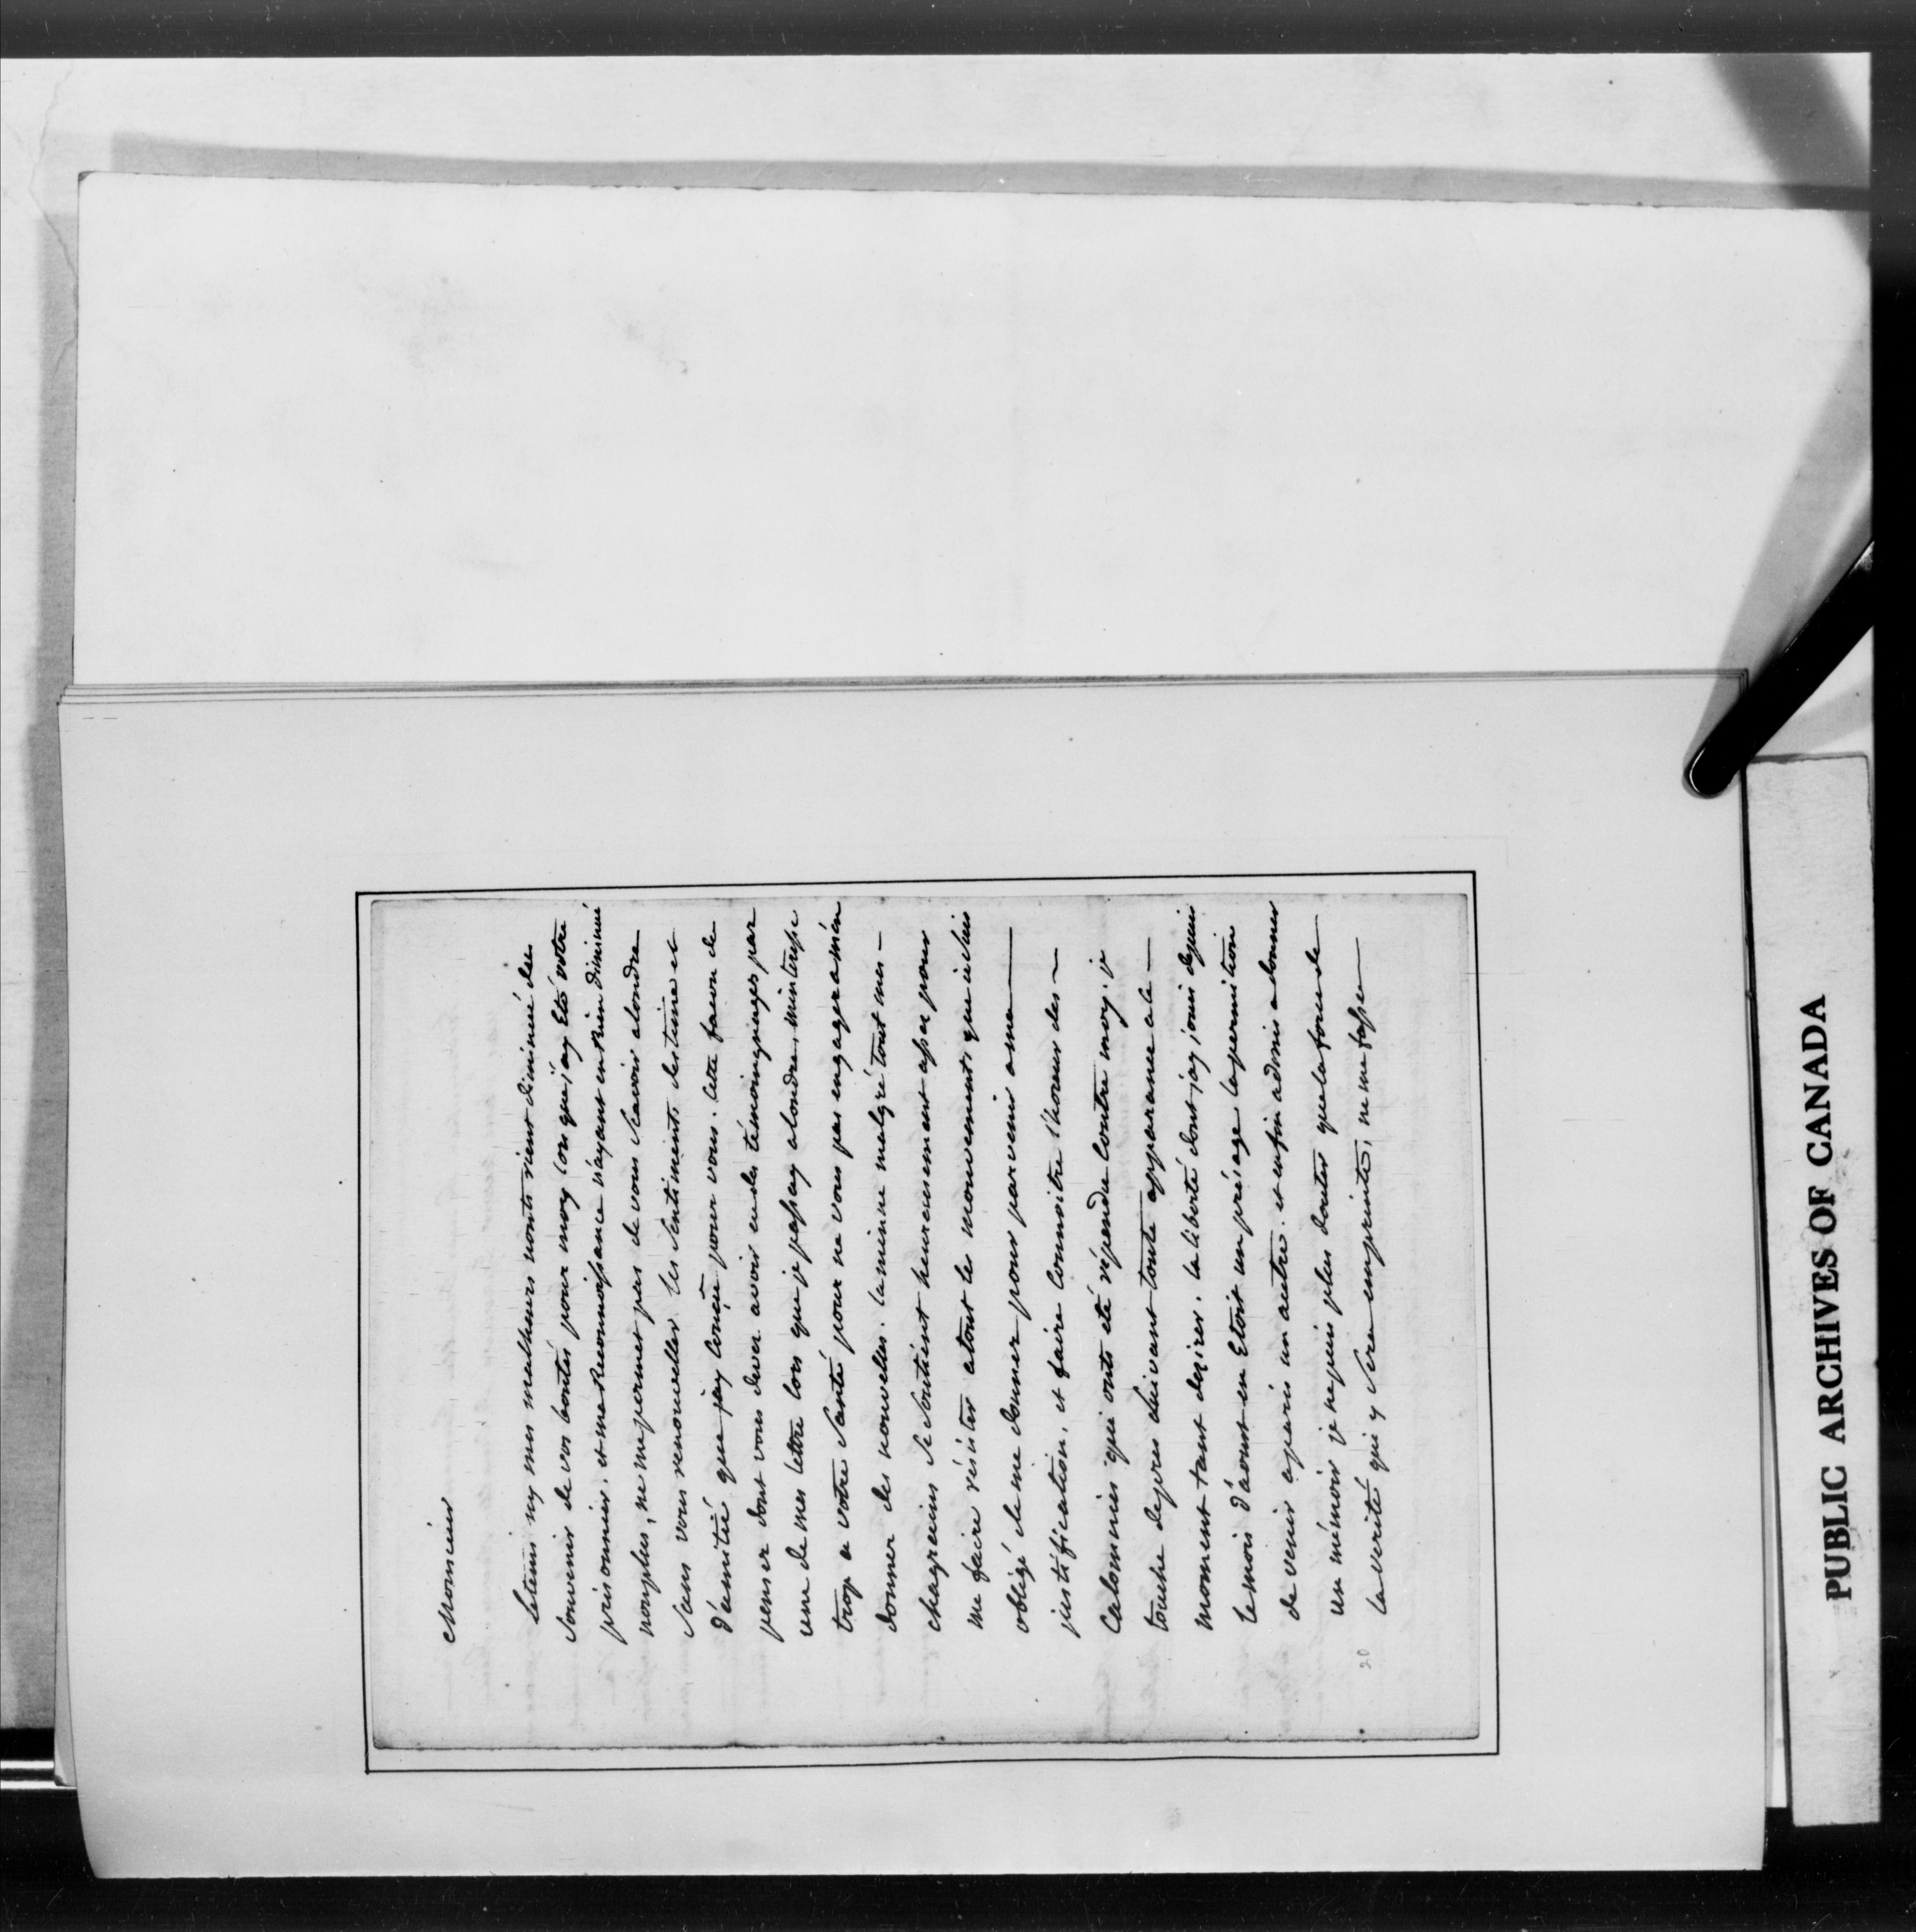 Monsieur
Letems ny mes malheurs nonts rienst diminué du
Souvenir de vos bontés pour moy lors que j'ay Eté votre
prisonnier. et ma Reconnoissance n'ayant en Rien diminué
nomplus, ne me permet pas de vous Scavoir alondre
Sans vous renouveller les Sentiments destime et
d'amitié que j'ay conçu pour vous. cette facon de
penser dont vous devez avoir eu des témoingniages par
une de mes lettre lors que je passay alondre, minterese
trop a votre Santé pour ne vous pas engager a mén
donner des nouvelles. la mienne malgré tout mes
chagreins Se Soutient heureusement assez pour
me faire résister atout les mouvements que je Suis
obligé de me donner pour parvenir a ma
justification, et faire Connoitre l'horreur des
Calomnies qui onts eté répendu Contre moy. je
touche depres Suivant toute apparance a le
moment tant desirer. la liberté dont j'ay joui depuis
le mois d'aoust en Etoit un présage la permition
de venir aparis un autre. et enfin admis a donner
un mémoir je nepuis plus douter que la force de
la verité qui y Sera empreinte, ne me fasse
20
PUBLIC ARCHIVES OF CANADA